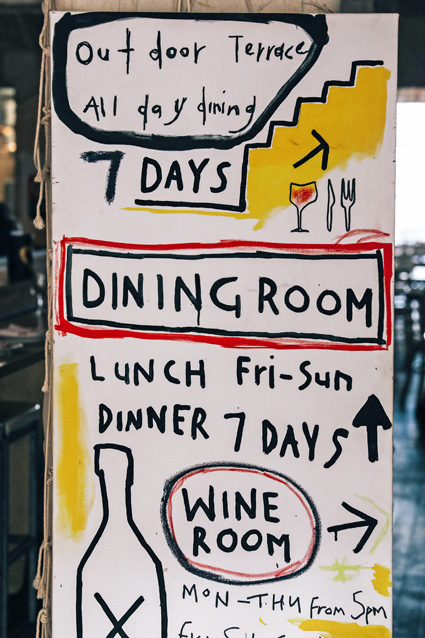 Outdoor Terrace
All day dining
7 DAYS
DINING ROOM
LUNCH Fri-Sun
DINNER 7 DAYS
WINE
ROOM
MON-THU From 5pm